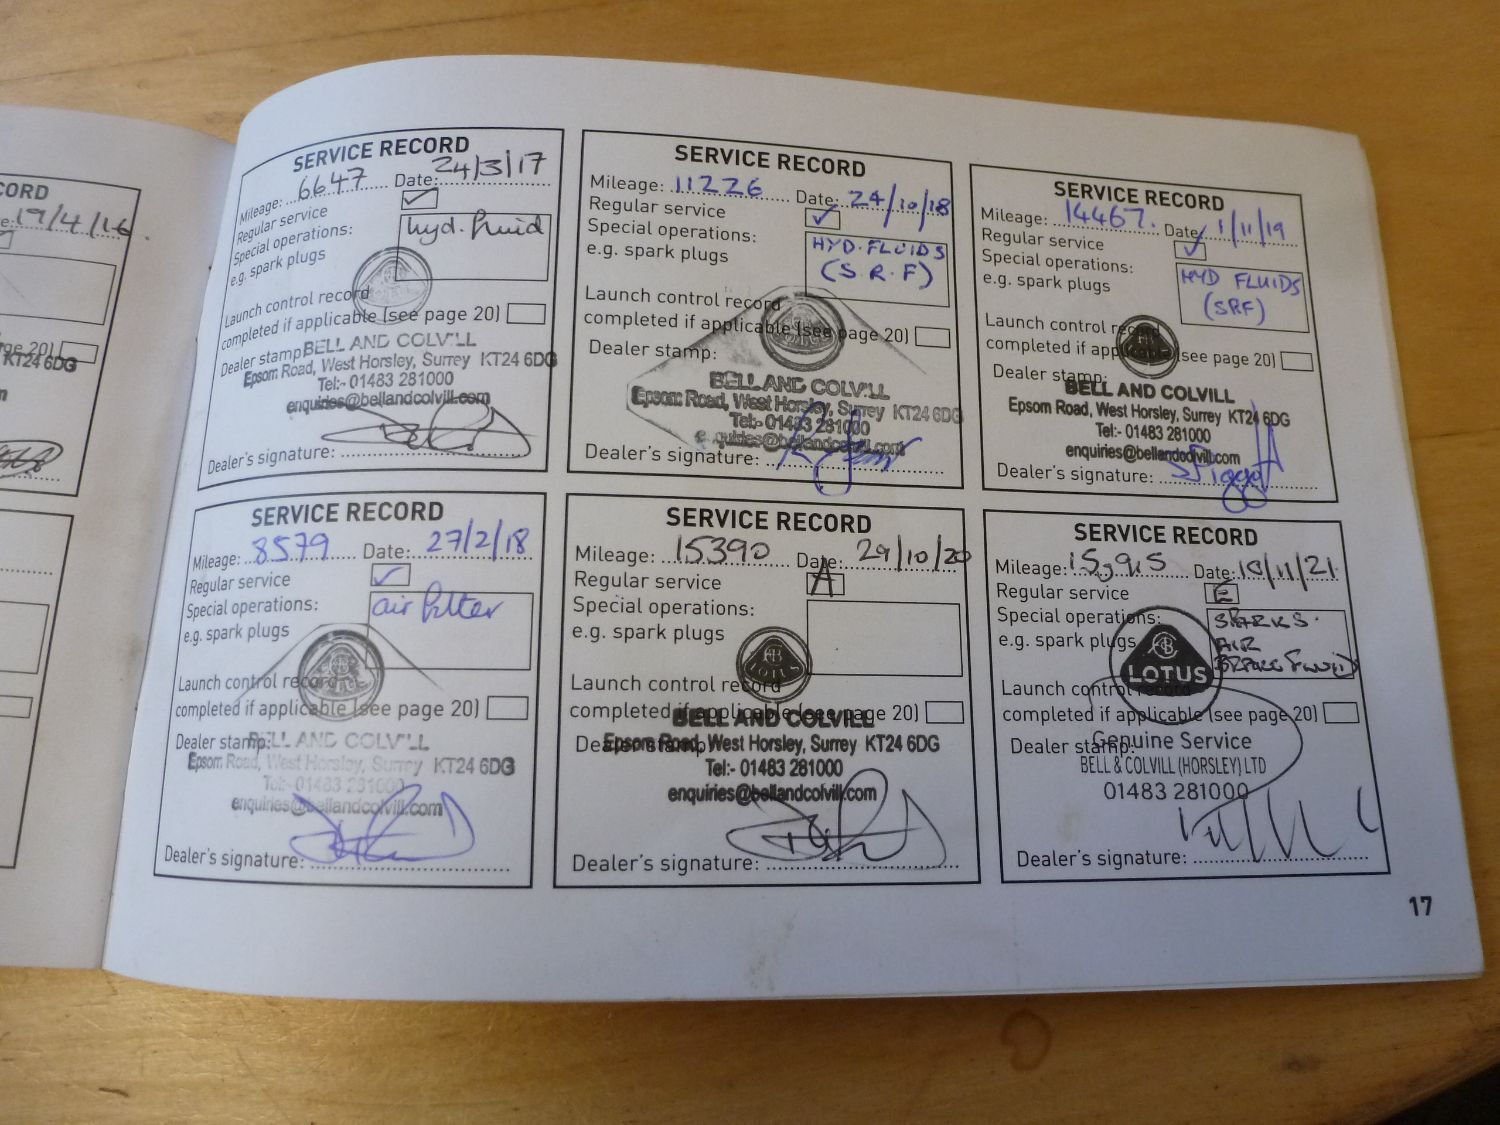 CORD
e: 19/4/16
ge 20)
KT24 6DG
SERVICE RECORD
Mileage: 6647 Date: 24/3/17
Regular service
Special operations: hyd. fluid
e.g. spark plugs
Launch control record
completed if applicable (see page 20)
Dealer stamp: BELL AND COLVILL
Epsom Road, West Horsley, Surrey KT24 6DG
Tel:- 01483 281000
enquiries@bellandcolvill.com
Dealer's signature:
SERVICE RECORD
Mileage: 11226 Date: 24/10/18
Regular service
Special operations: HYD. FLUIDS
e.g. spark plugs (S.R.F)
Launch control record
completed if applicable (see page 20)
Dealer stamp:
BELL AND COLVILL
Epsom Road, West Horsley, Surrey KT24 6DG
Tel:- 01483 281000
enquiries@bellandcolvill.com
Dealer's signature:
SERVICE RECORD
Mileage: 14467. Date: 1/11/19
Regular service
Special operations: HYD FLUIDS
e.g. spark plugs (SRF)
Launch control record
completed if applicable (see page 20)
Dealer stamp:
BELL AND COLVILL
Epsom Road, West Horsley, Surrey KT24 6DG
Tel:- 01483 281000
enquiries@bellandcolvill.com
Dealer's signature:
SERVICE RECORD
Mileage: 8579 Date: 27/2/18
Regular service
Special operations: air filter
e.g. spark plugs
Launch control record
completed if applicable (see page 20)
Dealer stamp: BELL AND COLVILL
Epsom Road, West Horsley, Surrey KT24 6DG
Tel:- 01483 281000
enquiries@bellandcolvill.com
Dealer's signature:
SERVICE RECORD
Mileage: 15390 Date: 29/10/20
Regular service A
Special operations:
e.g. spark plugs
LOTUS
Launch control record
completed if applicable (see page 20)
BELL AND COLVILL
Dealer stamp:
Epsom Road, West Horsley, Surrey KT24 6DG
Tel:- 01483 281000
enquiries@bellandcolvill.com
Dealer's signature:
SERVICE RECORD
Mileage: Date: 10/11/21
Regular service E
Special operations: SPARKS.
e.g. spark plugs AIR
BRAKE FLUID
LOTUS
Launch control record
completed if applicable (see page 20)
Dealer stamp:
Genuine Service
BELL & COLVILL (HORSLEY) LTD
01483 281000
Dealer's signature:
17